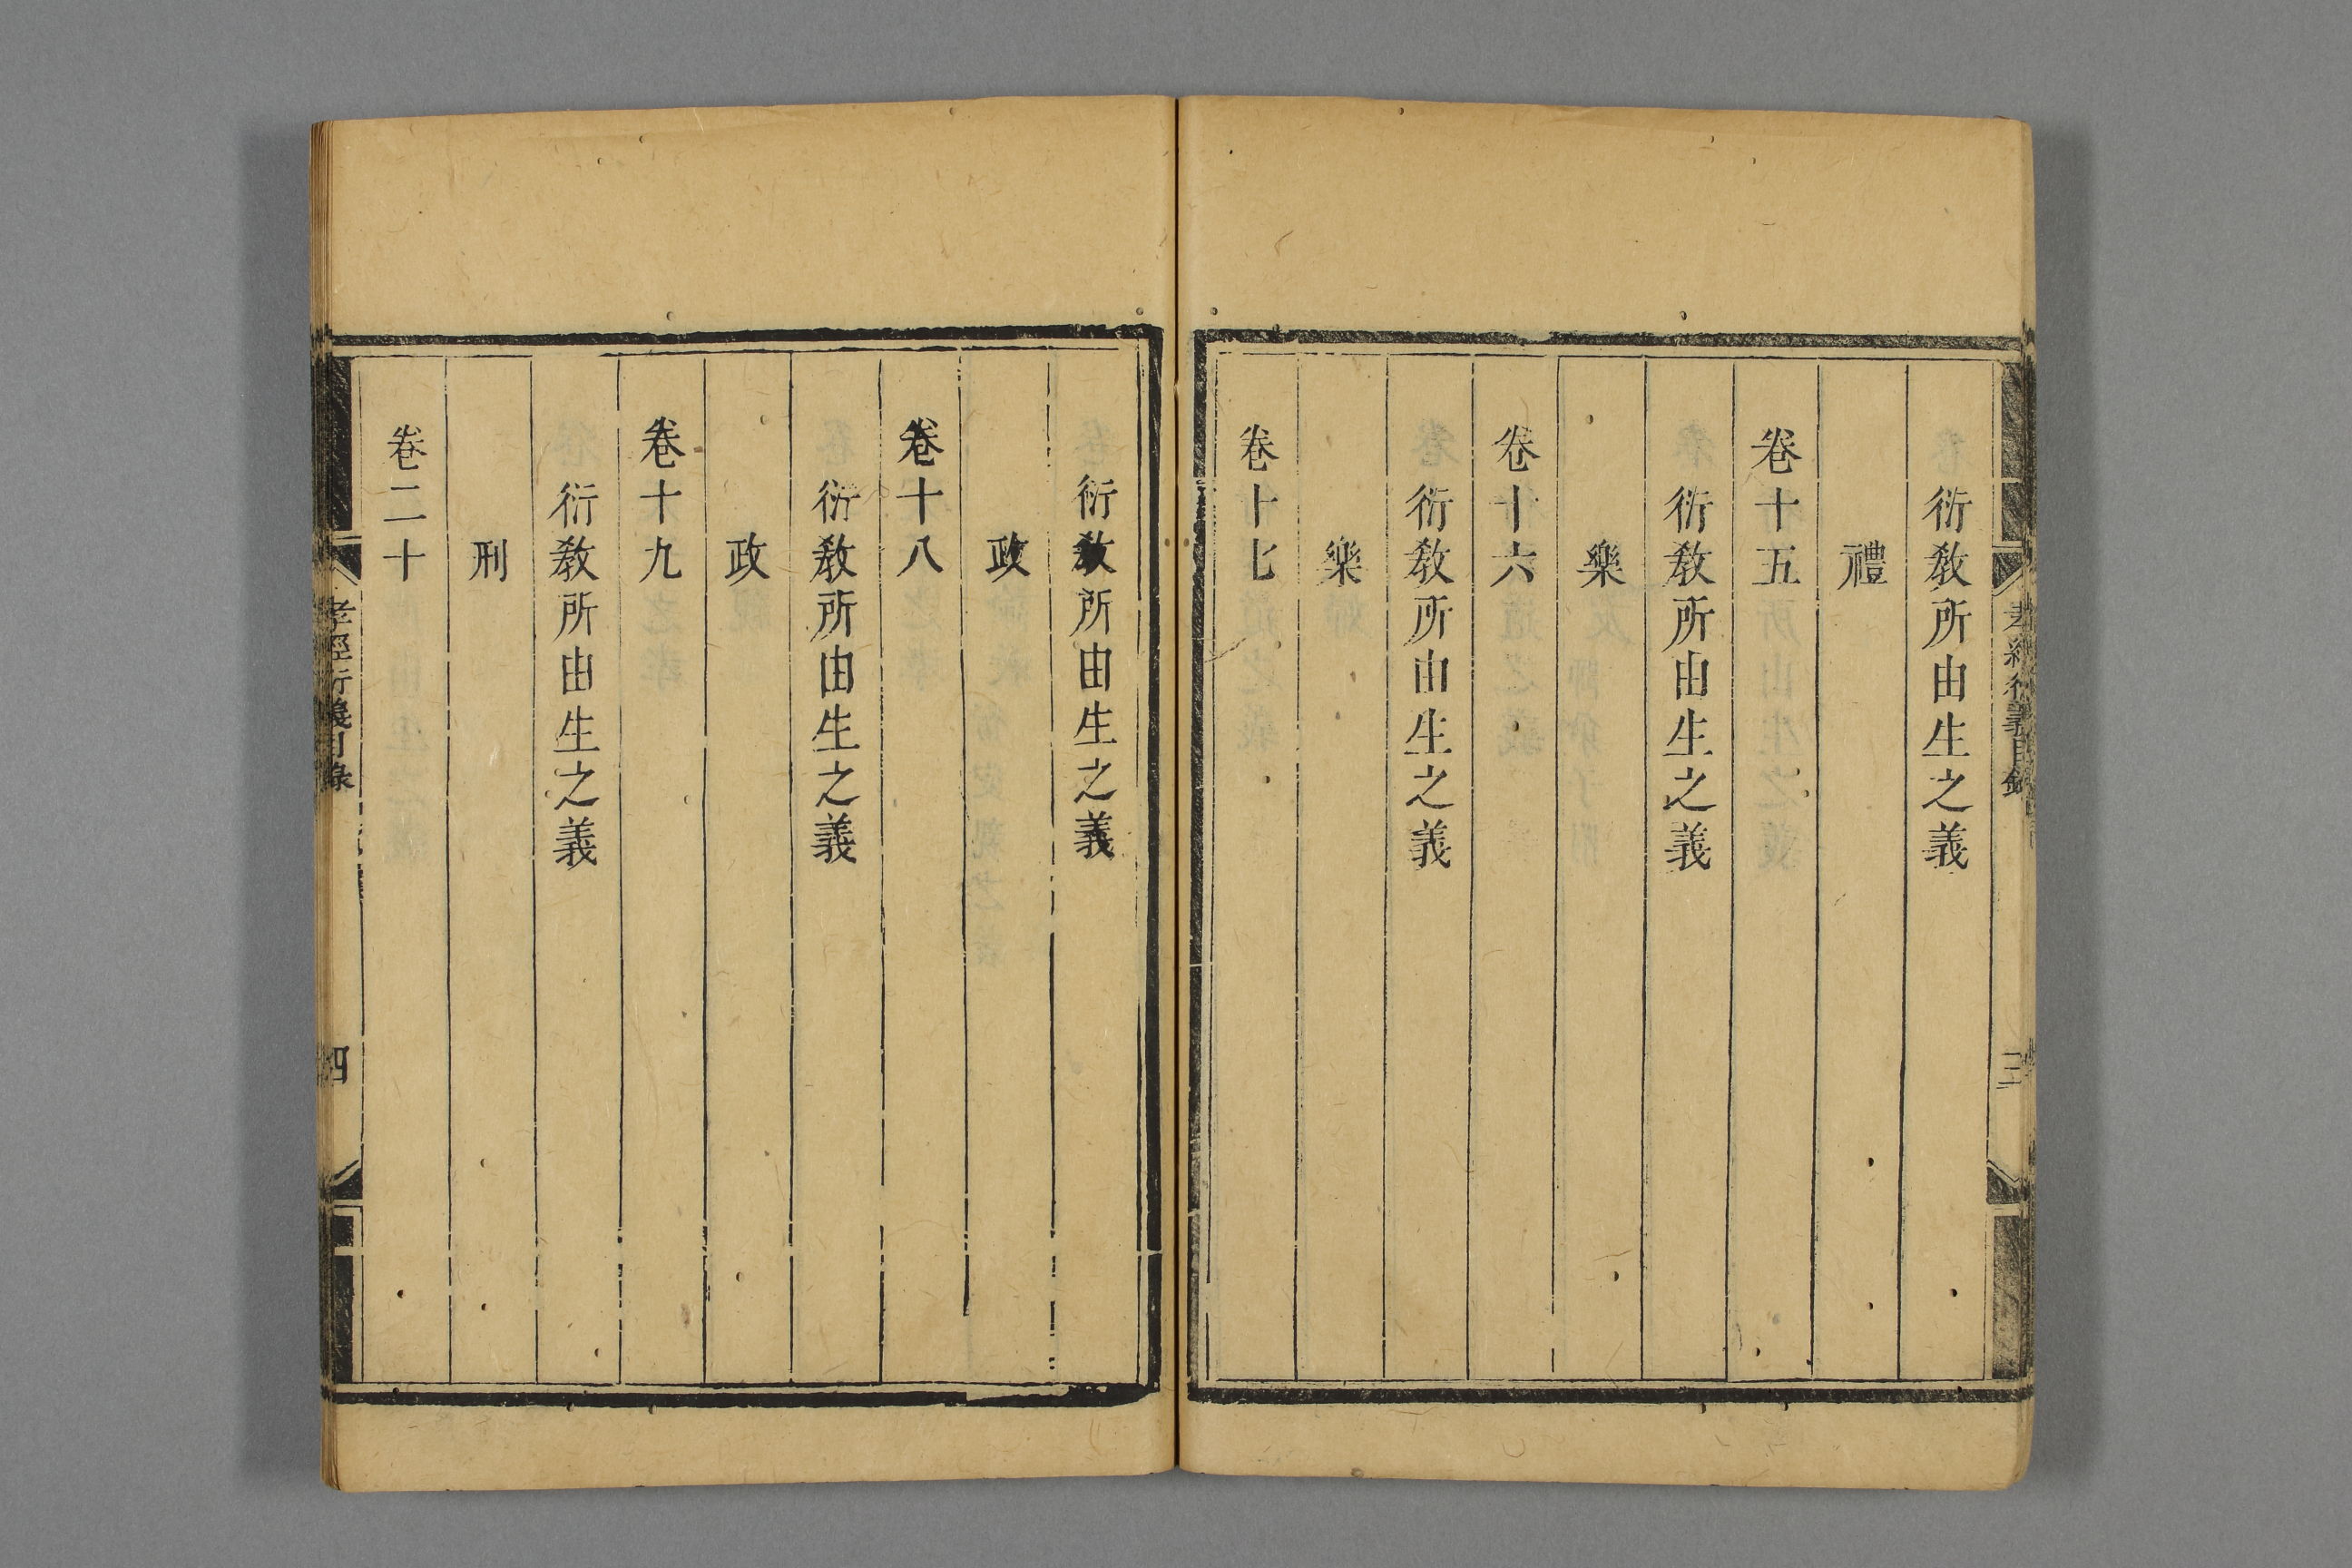 衍敎所由生之義
禮
卷十五
衍敎所由生之義
樂
卷十六
衍敎所由生之義
樂
卷十七
衍敎所由生之義
政
卷十八
衍敎所由生之義
政
卷十九
衍敎所由生之義
刑
卷二十
孝經衍義目錄
四